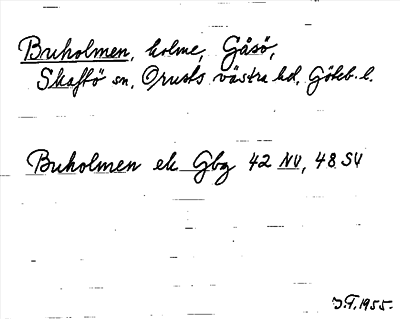 Buholmen, holme, Gåsö,
Skaftö sn, Orusts västra hd, Göteb. l.
Buholmen ek Gbg 42 NV, 48 SV
J.F. 1955.